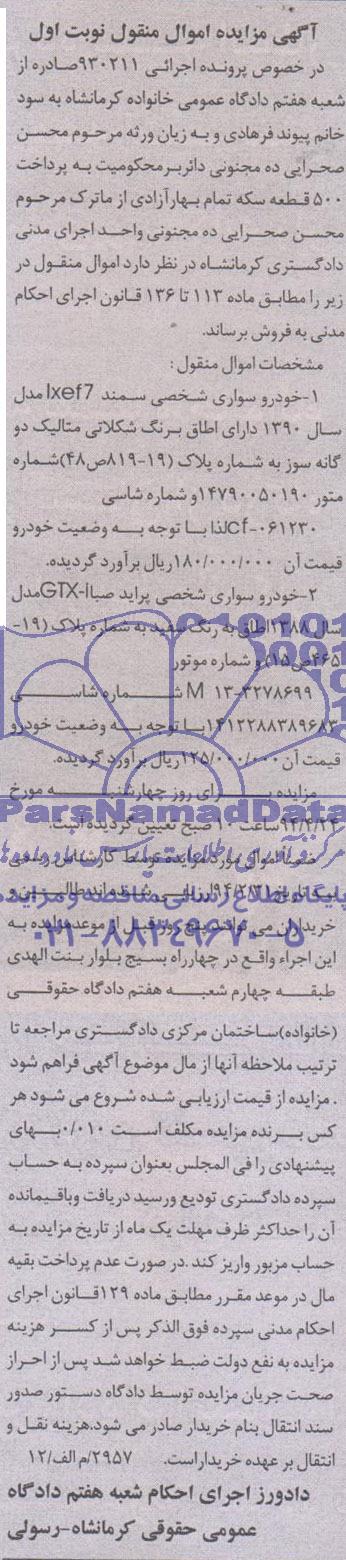 آگهی مزایده اموال منقول نوبت اول
در خصوص پرونده اجرائی ۹۳۰۲۱۱صادره از
شعبه هفتم دادگاه عمومی خانواده کرمانشاه به سود
خانم پیوند فرهادی و به زیان ورثه مرحوم محسن
صحرایی ده مجنونی دائربرمحکومیت به پرداخت
۵۰۰ قطعه سکه تمام بهارآزادی از ماترک مرحوم
محسن صحرایی ده مجنونی واحد اجرای مدنی
دادگستری کرمانشاه در نظر دارد اموال منقول در
زیر را مطابق ماده ۱۱۳ تا ۱۳۶ قانون اجرای احکام
مدنی به فروش برساند.
مشخصات اموال منقول:
۱-خودرو سواری شخصی سمند lxef7 مدل
سال ۱۳۹۰ دارای اطاق برنگ شکلاتی متالیک دو
گانه سوز به شماره پلاک (۱۹-۸۱۹ص۴۸)شماره
متور ۱۴۷۹۰۰۵۰۱۹۰و شماره شاسی
cf-۰۶۱۲۳۰لذا با توجه به وضعیت خودرو
قیمت آن ۱۸۰/۰۰۰/۰۰۰ریال برآورد گردیده.
۲-خودرو سواری شخصی پراید صباGTX-iمدل
سال ۱۳۸۸اطاق به رنگ سفید به شماره پلاک (۱۹-
۴۶۵ص۱۵) و شماره موتور
M ۱۳-۳۲۷۸۶۹۹ شماره شاسی
۱۴۱۲۲۸۸۳۸۹۶۸۳با توجه به وضعیت خودرو
قیمت آن ۱۲۵/۰۰۰/۰۰۰ریال برآورد گردیده.
مزایده برای روز چهارشنبه مورخ
۹۴/۴/۲۴ساعت ۱۰ صبح تعیین گردیده است.
ParsNamadData
ضمنا اموال مورد مزایده توسط کارشناس رسمی
پایگاه اطلاع رسانی مناقصه و مزایده
خریداران می توانند پنج روز قبل از موعد مزایده به
۰۲۱-۸۸۳۴۹۶۷۰-۵
این اجراء واقع در چهارراه بسیج بلوار بنت الهدی
طبقه چهارم شعبه هفتم دادگاه حقوقی
(خانواده)ساختمان مرکزی دادگستری مراجعه تا
ترتیب ملاحظه آنها از مال موضوع آگهی فراهم شود
. مزایده از قیمت ارزیابی شده شروع می شود هر
کس برنده مزایده مکلف است ۰/۰۱۰بهای
پیشنهادی را فی المجلس بعنوان سپرده به حساب
سپرده دادگستری تودیع ورسید دریافت وباقیمانده
آن را حداکثر ظرف مهلت یک ماه از تاریخ مزایده به
حساب مزبور واریز کند .در صورت عدم پرداخت بقیه
مال در موعد مقرر مطابق ماده ۱۲۹قانون اجرای
احکام مدنی سپرده فوق الذکر پس از کسر هزینه
مزایده به نفع دولت ضبط خواهد شد پس از احراز
صحت جریان مزایده توسط دادگاه دستور صدور
سند انتقال بنام خریدار صادر می شود.هزینه نقل و
انتقال بر عهده خریداراست. ۲۹۵۷/م الف/۱۲
دادورز اجرای احکام شعبه هفتم دادگاه
عمومی حقوقی کرمانشاه-رسولی